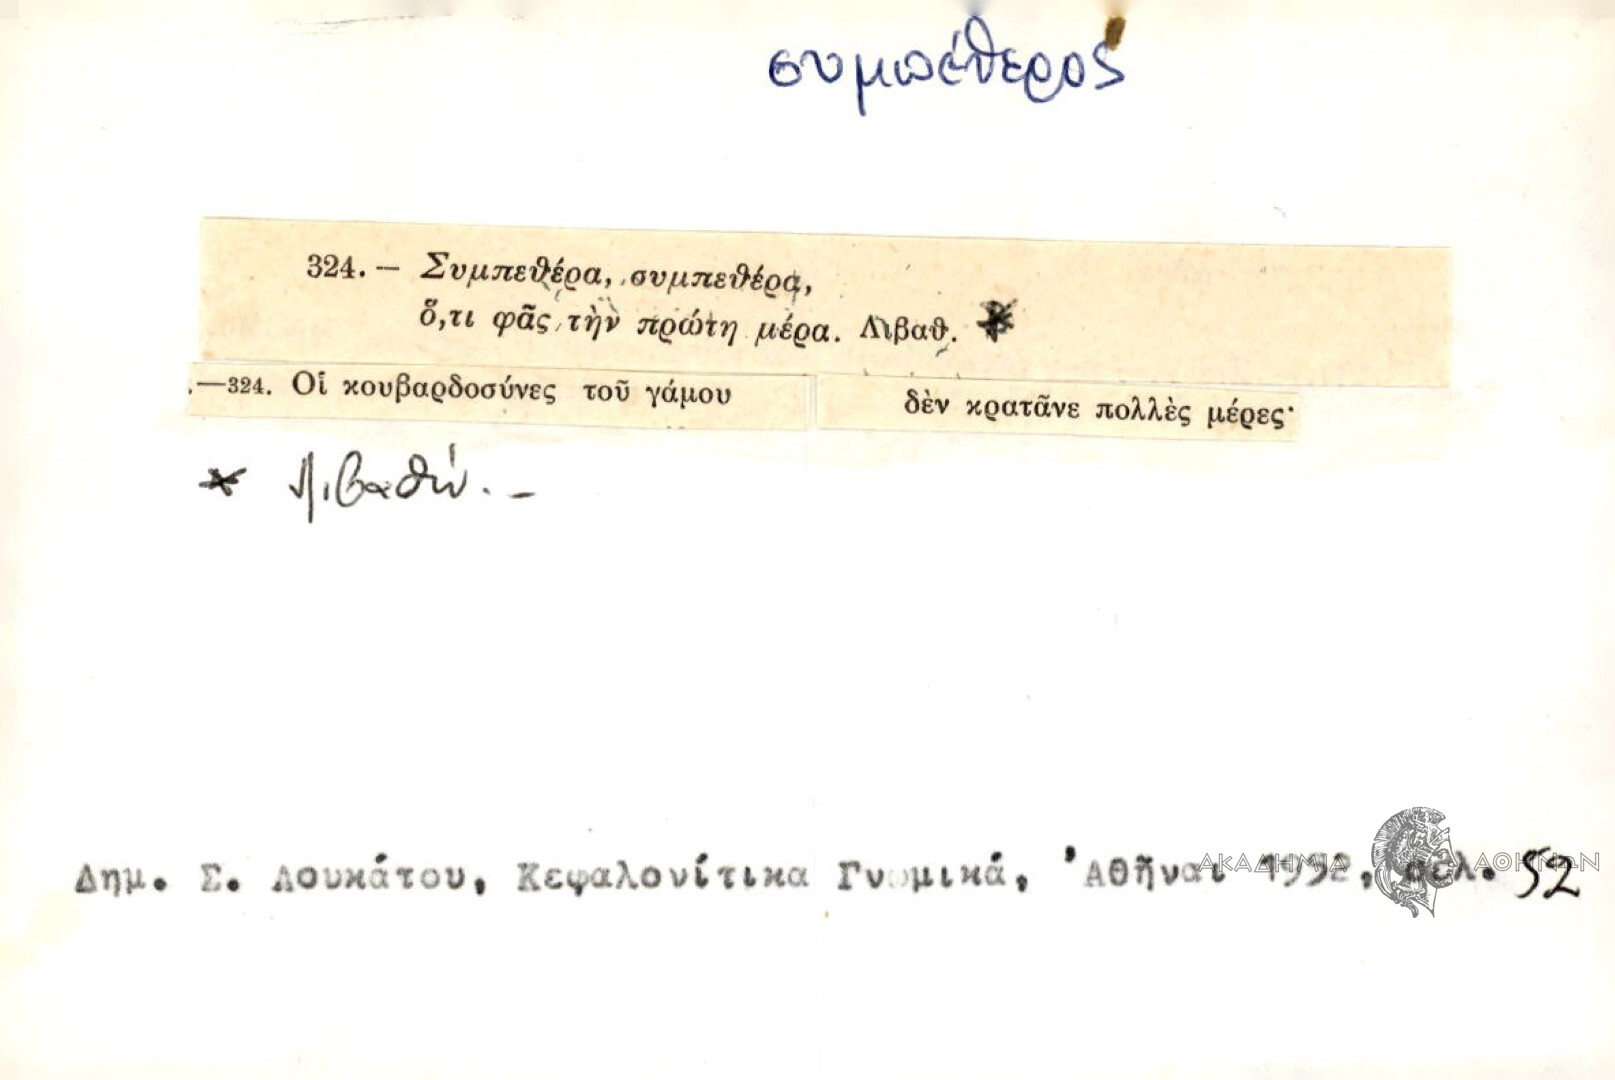 συμπέθερος
324. — Συμπεθέρα, συμπεθέρα,
ὅ,τι φᾶς τὴν πρώτη μέρα. Λιβαθ. *
.—324. Οἱ κουβαρδοσύνες τοῦ γάμου δὲν κρατᾶνε πολλὲς μέρες·
* Λιβαθώ. —
Δημ. Σ. Λουκάτου, Κεφαλονίτικα Γνωμικά, Ἀθῆναι 1952, σελ. 52
ΑΚΑΔΗΜΙΑ ΑΘΗΝΩΝ